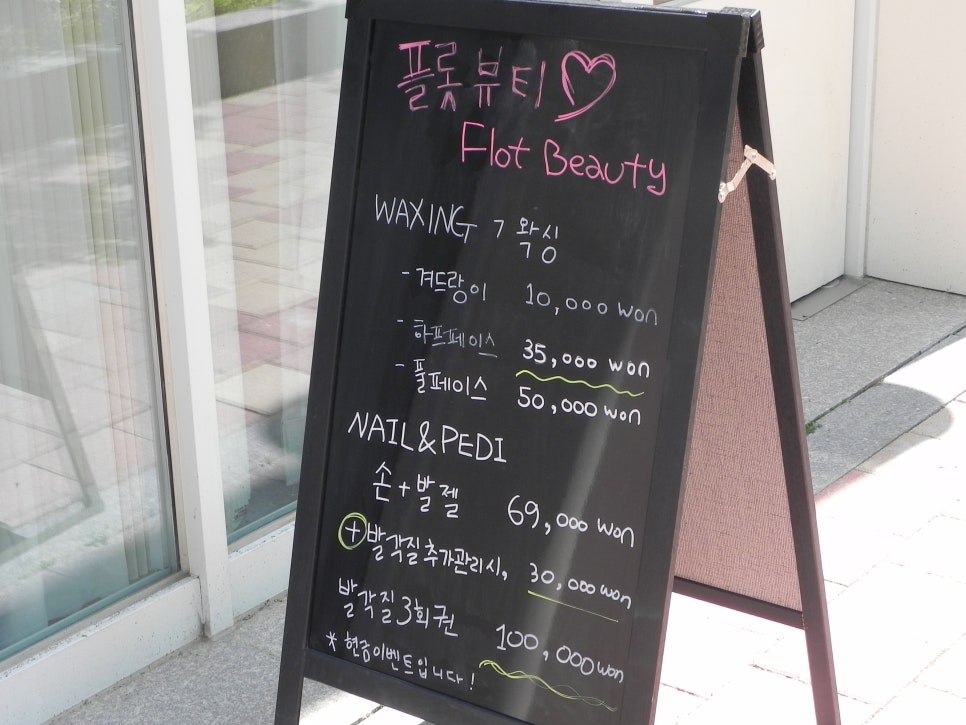 플롯 뷰티
Flot Beauty
WAXING 7 왁싱
- 겨드랑이 10,000 won
- 하프페이스 35,000 won
- 풀페이스 50,000 won
NAIL&PEDI
손+발 젤 69,000 won
+ 발각질 추가관리시, 30,000 won
발각질 3회권 100,000 won
* 현금이벤트입니다!